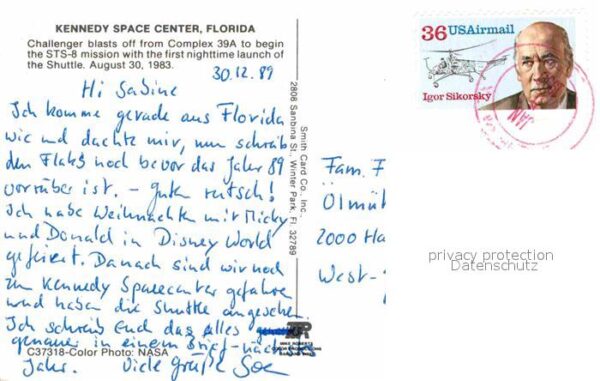 KENNEDY SPACE CENTER, FLORIDA
Challenger blasts off from Complex 39A to begin
the STS-8 mission with the first nighttime launch of
the Shuttle. August 30, 1983.
30.12.89
Hi Sabine
Ich komme gerade aus Florida
wie und dachte mir, nun schreib
den Flaks noch bevor das Jahr 89
vorrüber ist. – guten rutsch!
Ich habe Weihnachten mit Micky
und Donald in Disney World
gefeiert. Danach sind wir noch
zum Kennedy Spacecenter gefahren
und haben die Shuttle angesehen.
Ich schreib Euch das alles
genauer in einem Brief nächstes
Jahr. Viele Grüße
C37318-Color Photo: NASA
Smith Card Co., Inc.,
2808 Sanbina St., Winter Park, Fl 32789
36 USAirmail
Igor Sikorsky
JAN
Fam. F
Ölmüh
2000 Ha
West-
privacy protection
Datenschutz